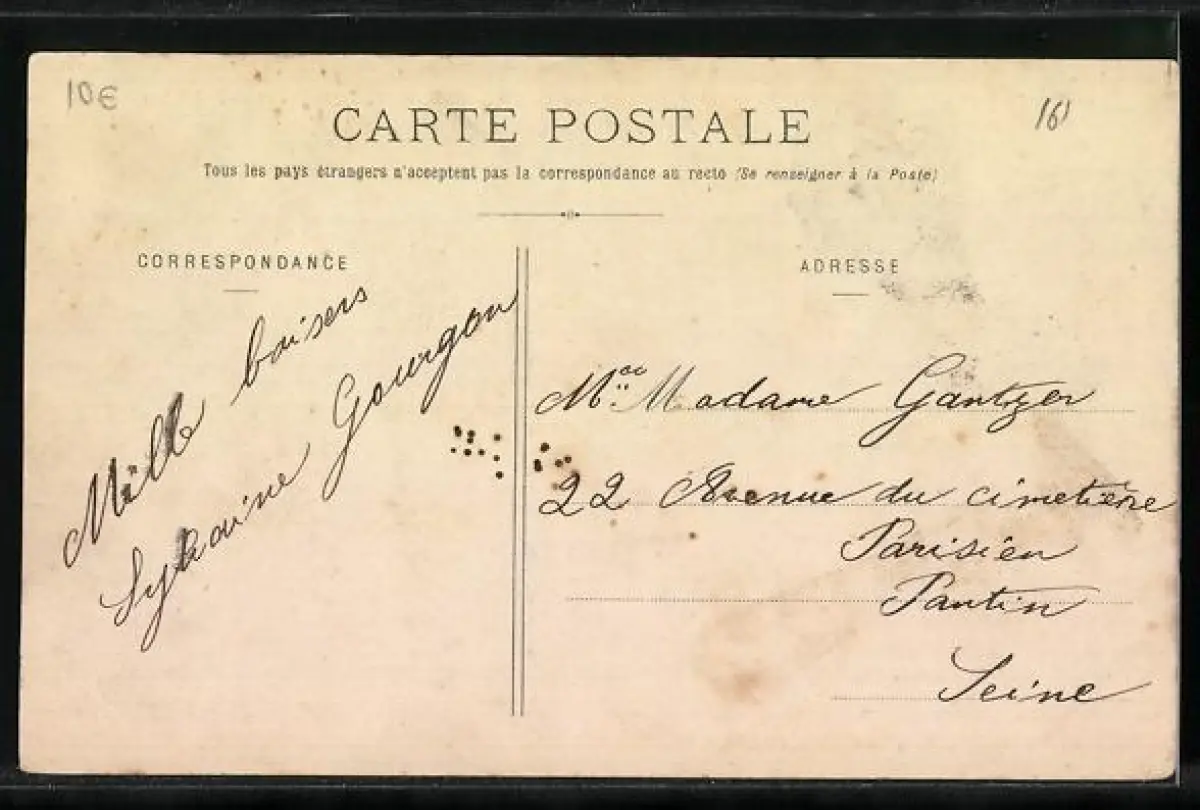 10€
16)
CARTE POSTALE
Tous les pays étrangers n'acceptent pas la correspondance au recto (Se renseigner à la Poste)
CORRESPONDANCE
Mille baisers
Sylvaine Gourgon
ADRESSE
Madame Gantzer
22 Avenue du cimetière
Parisien
Pantin
Seine